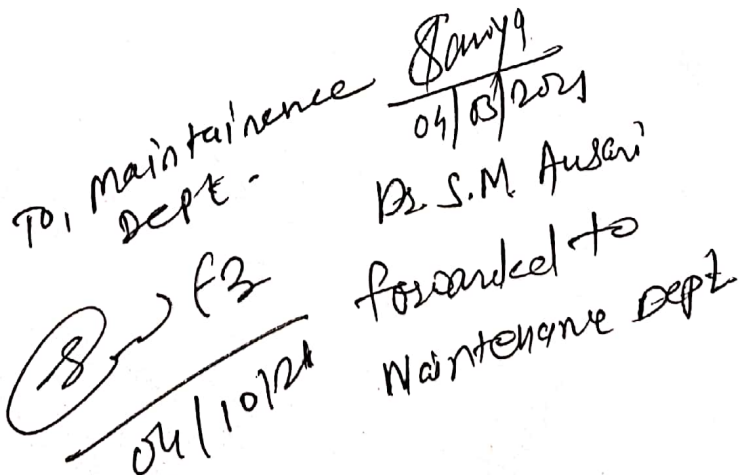 To, Maintainence
Dept.
Saniya
04/03/2021
Dr S.M. Ansari
forwarded to
Maintenance Dept.
04/10/21